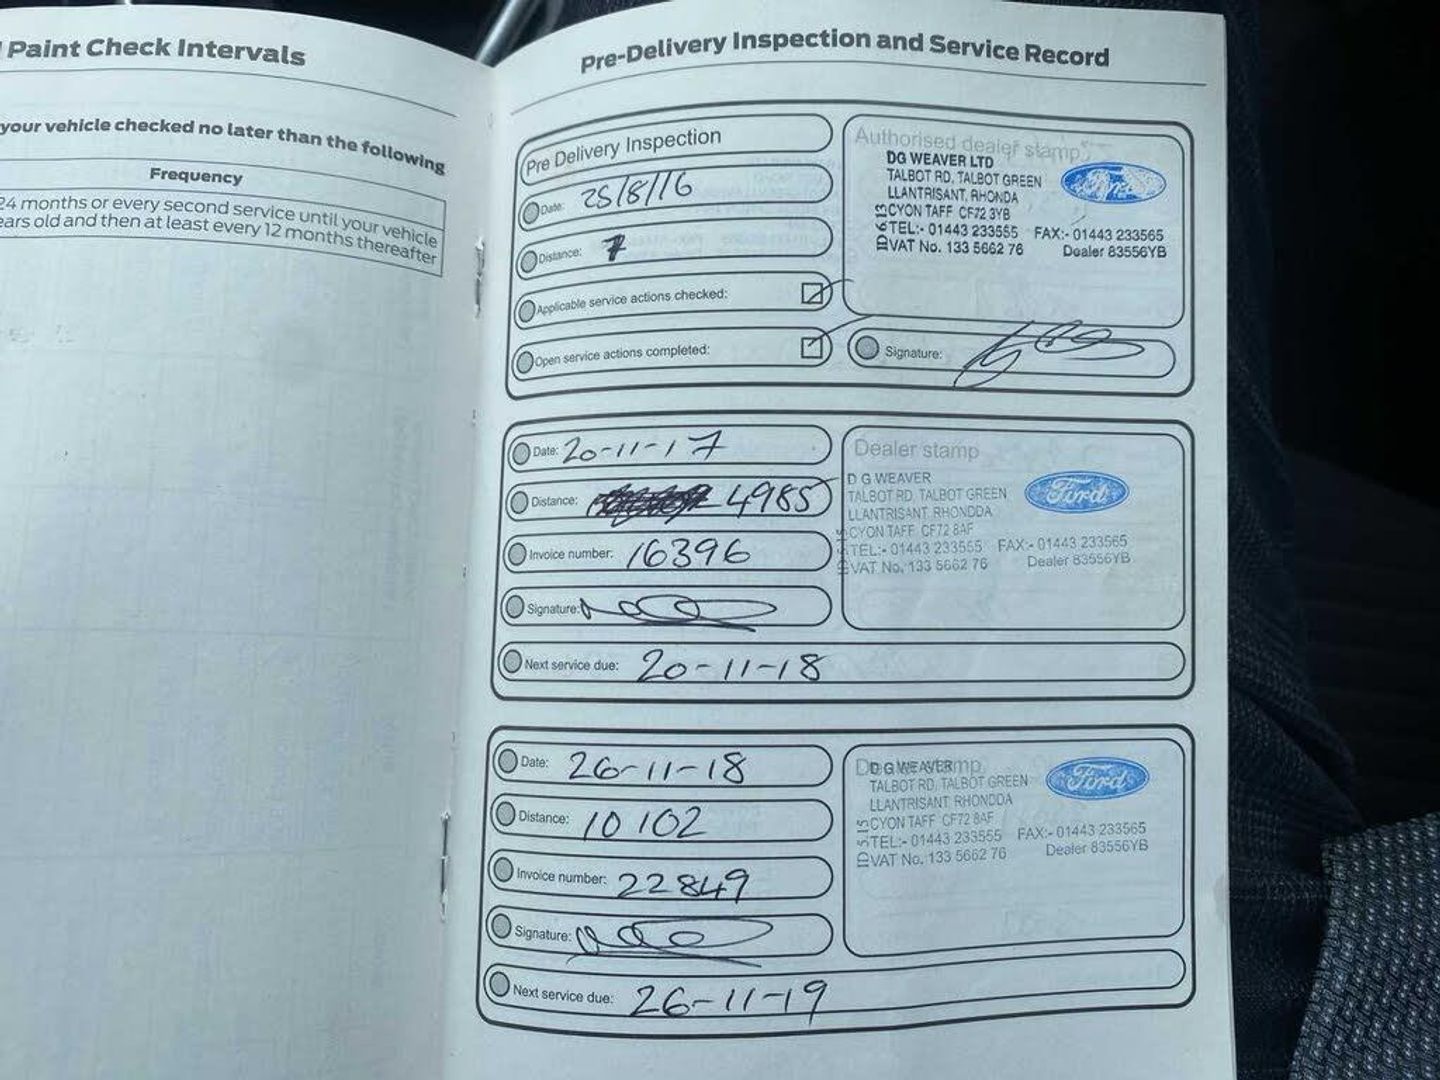 Paint Check Intervals
your vehicle checked no later than the following
Frequency
24 months or every second service until your vehicle
ears old and then at least every 12 months thereafter
Pre-Delivery Inspection and Service Record
Pre Delivery Inspection
Date: 25/8/16
Distance: 7
Applicable service actions checked:
Open service actions completed:
Authorised dealer stamp
DG WEAVER LTD
TALBOT RD, TALBOT GREEN
LLANTRISANT, RHONDA
CYON TAFF CF72 3YB
TEL:- 01443 233555 FAX:- 01443 233565
VAT No. 133 5662 76 Dealer 83556YB
Ford
Signature:
Date: 20-11-17
Distance: 4985
Invoice number: 16396
Signature:
Next service due: 20-11-18
Dealer stamp
D G WEAVER
TALBOT RD, TALBOT GREEN
LLANTRISANT, RHONDDA
CYON TAFF CF72 8AF
TEL:- 01443 233555 FAX:- 01443 233565
VAT No. 133 5662 76 Dealer 83556YB
Ford
Date: 26-11-18
Distance: 10102
Invoice number: 22849
Signature:
Next service due: 26-11-19
Dealer stamp
D G WEAVER
TALBOT RD, TALBOT GREEN
LLANTRISANT, RHONDDA
CYON TAFF CF72 8AF
TEL:- 01443 233555 FAX:- 01443 233565
VAT No. 133 5662 76 Dealer 83556YB
Ford